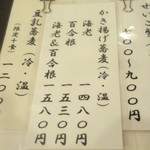 〇〇〜九〇〇円
かき揚げ蕎麦（冷・温）
海老　一四八〇円
百合根　一五三〇円
海老&百合根　一五八〇円
豆乳蕎麦（冷・温）
（限定十食）
一二〇